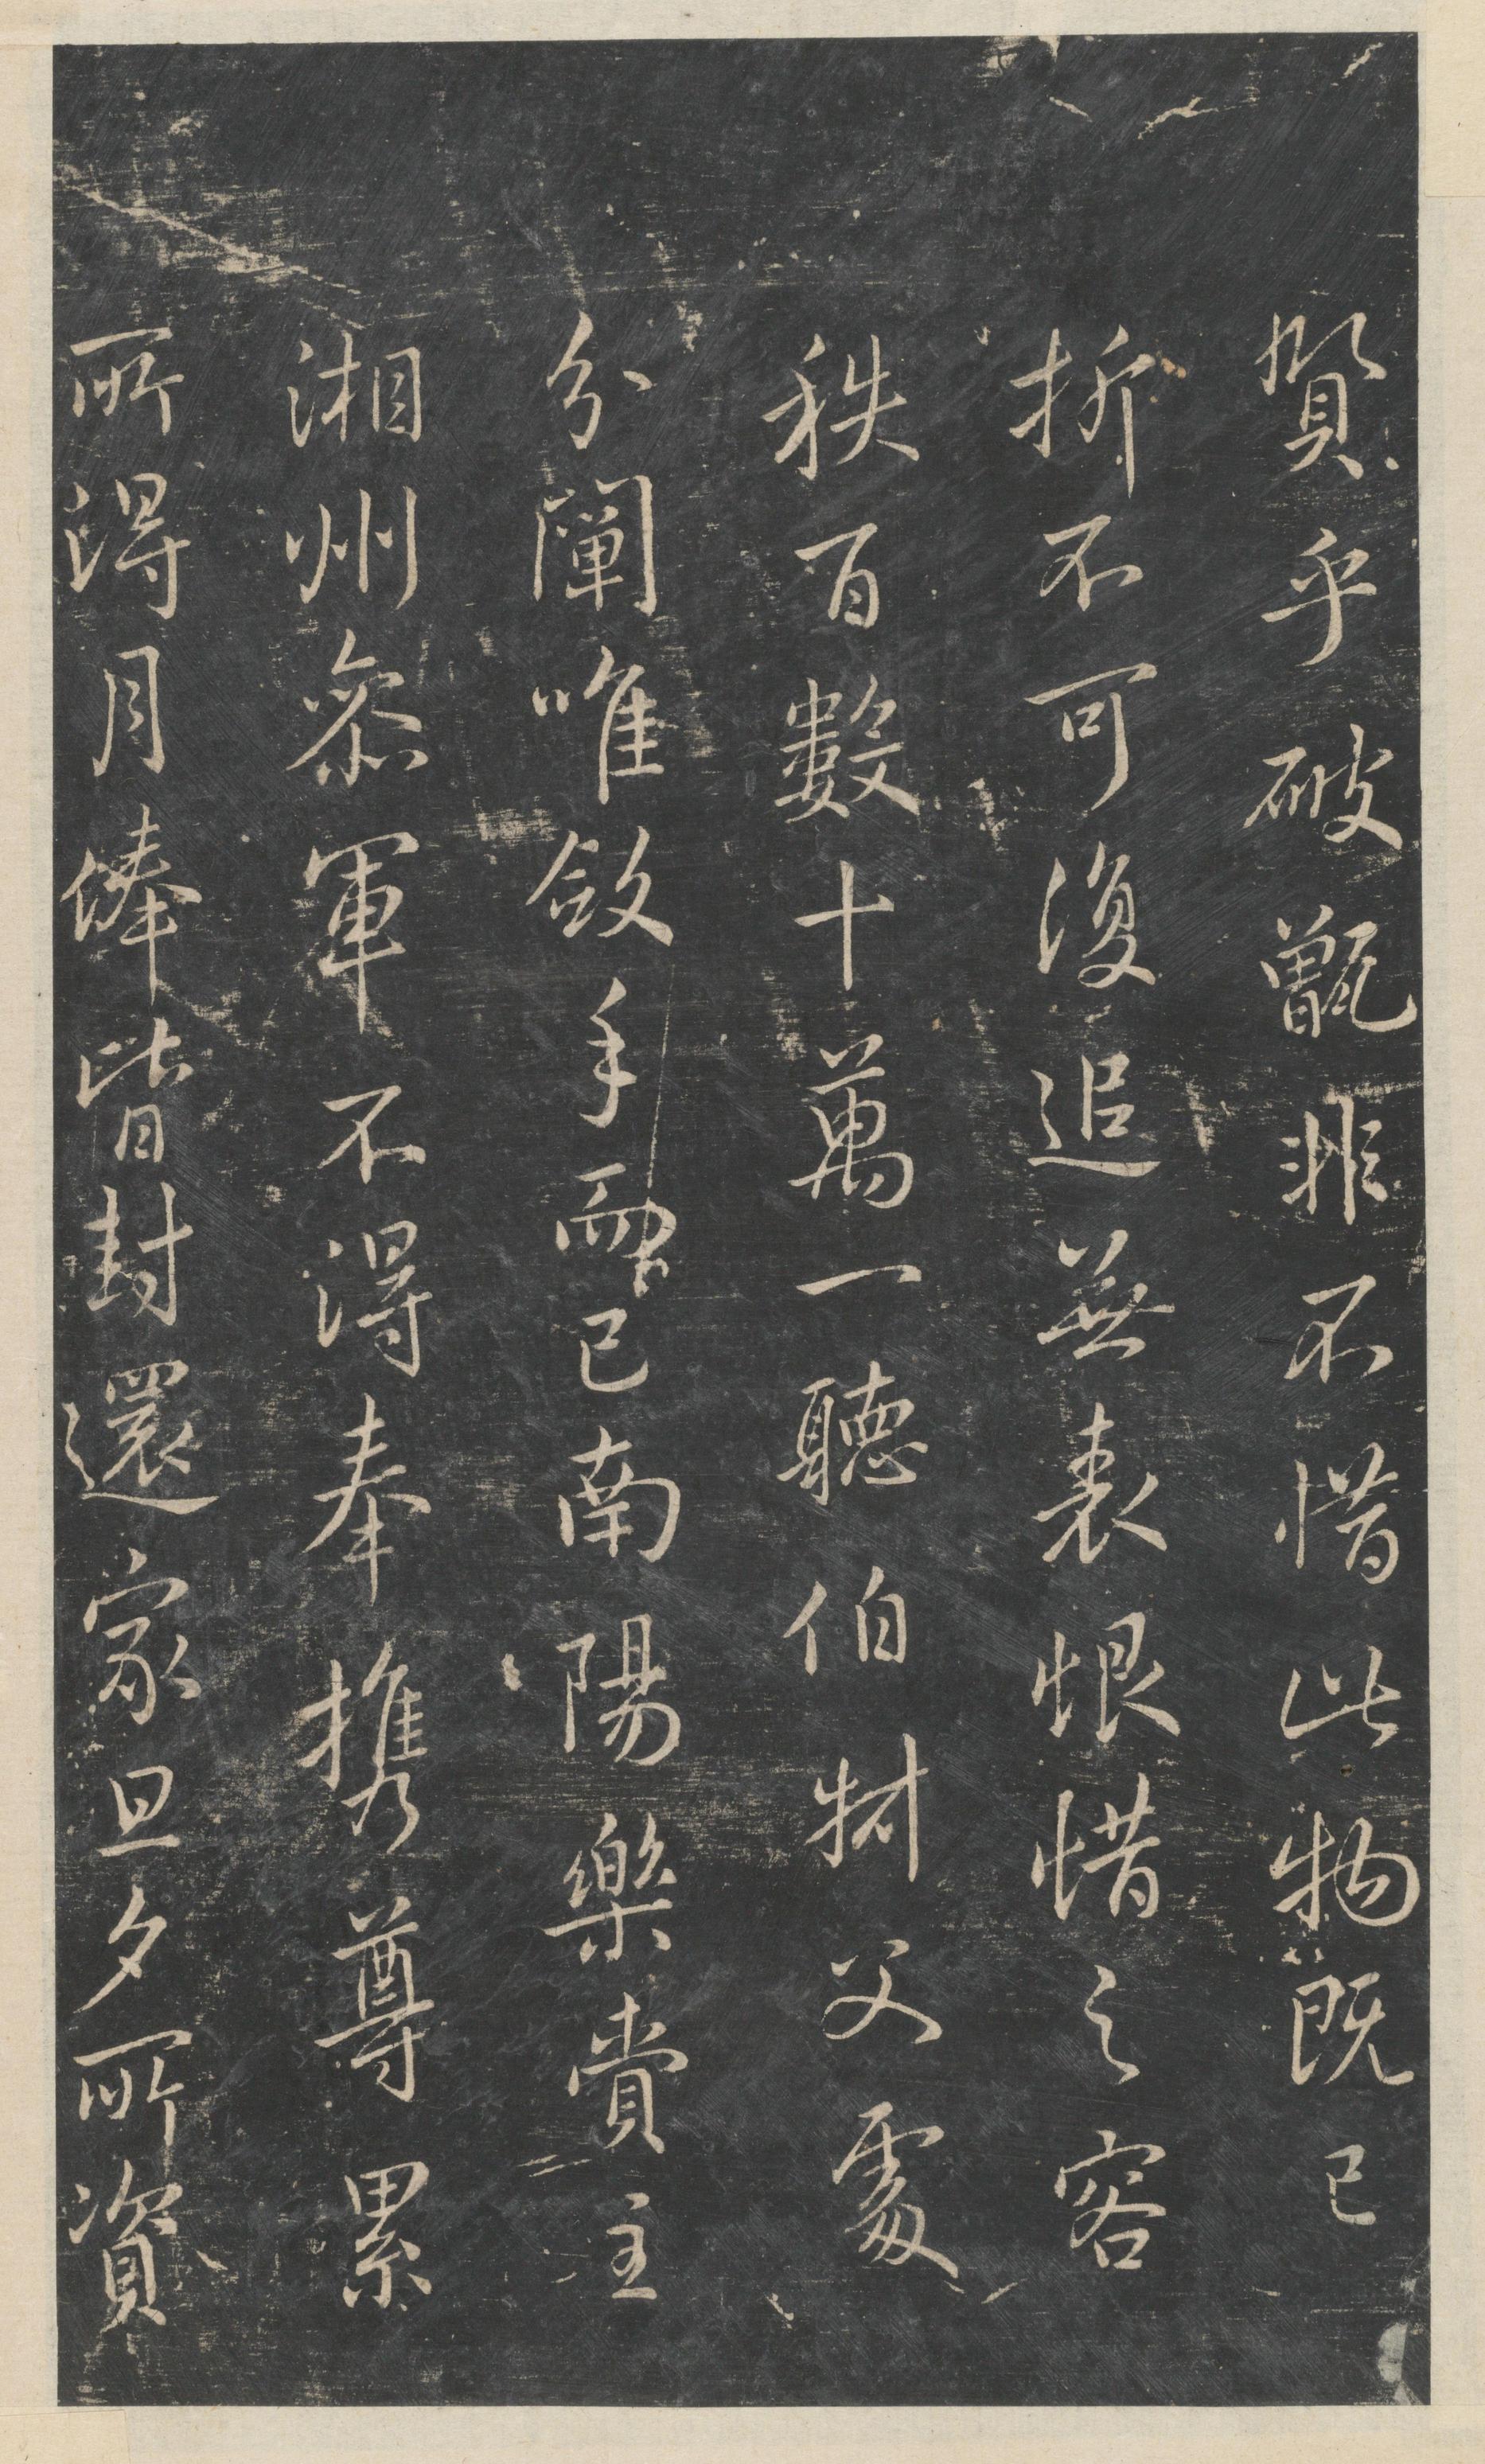 賢乎破甑非不惜此物既已
折不可復追無表恨惜之容
秩百數十萬一聽伯材父處
分闡唯斂手而已南陽樂賞主
湘州參軍不得奉携尊累
所得月俸皆封還家旦夕所資